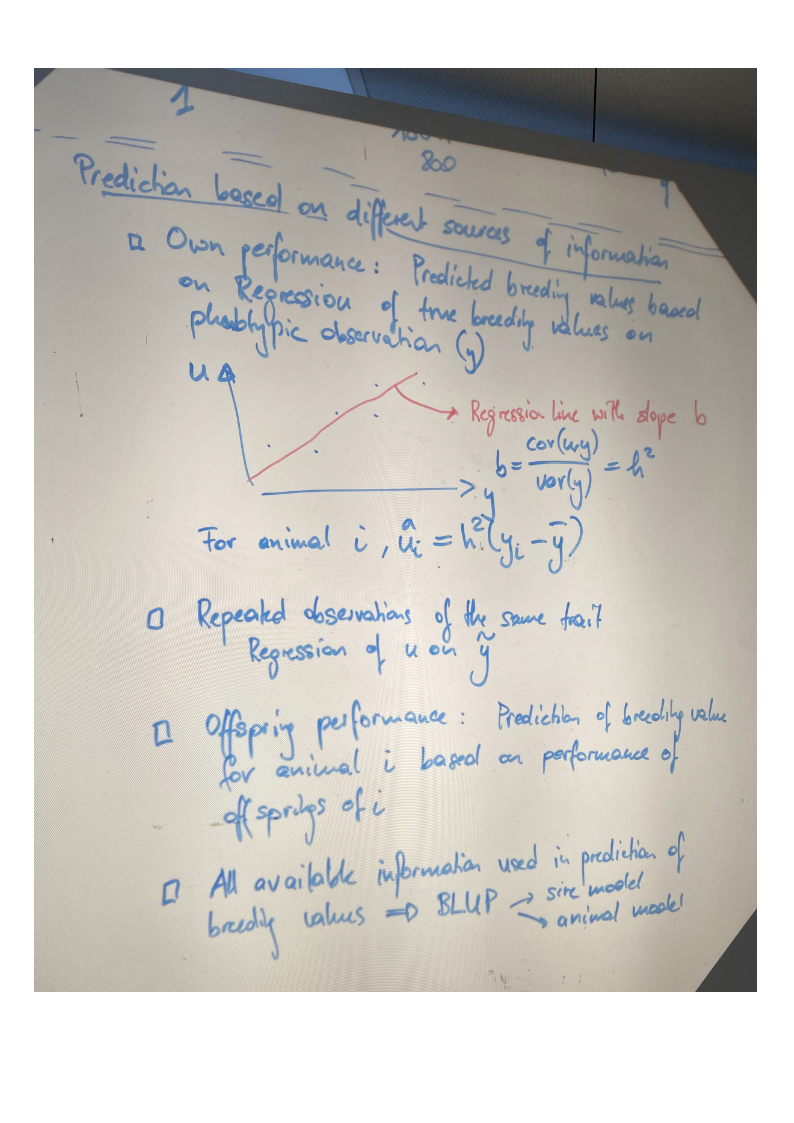 1
800
Prediction based on different sources of information
Own performance: Predicted breeding values based
on Regression of true breeding values on
phenotypic observation (y)
u
Regression line with slope b
b = cov(u,y) / var(y) = h²
y
For animal i, û_i = h²(y_i - ȳ)
Repeated observations of the same trait
Regression of u on ỹ
Offspring performance: Prediction of breeding value
for animal i based on performance of
offsprings of i
All available information used in prediction of
breeding values ⇒ BLUP → sire model
→ animal model